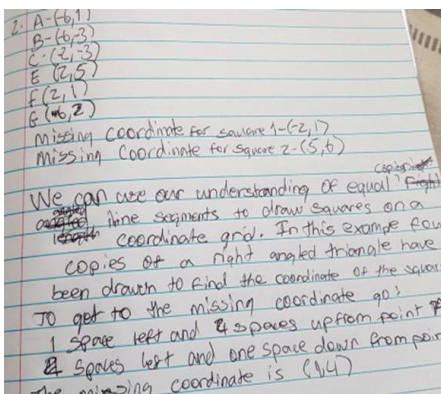 2. A-(-6,1)
B-(-6,-3)
C-(2,-3)
E (2,5)
F (2,1)
missing coordinate for square 1-(-2,1)
Missing Coordinate for square 2-(5,6)
copies
We can use our understanding of equal
line segments to draw squares on a
coordinate grid. In this example four
copies of a right angled triangle have
been drawn to find the coordinate of the square
To get to the missing coordinate go:
1 space left and 4 spaces up from point
spaces left and one space down from point
The missing coordinate is (1,4)